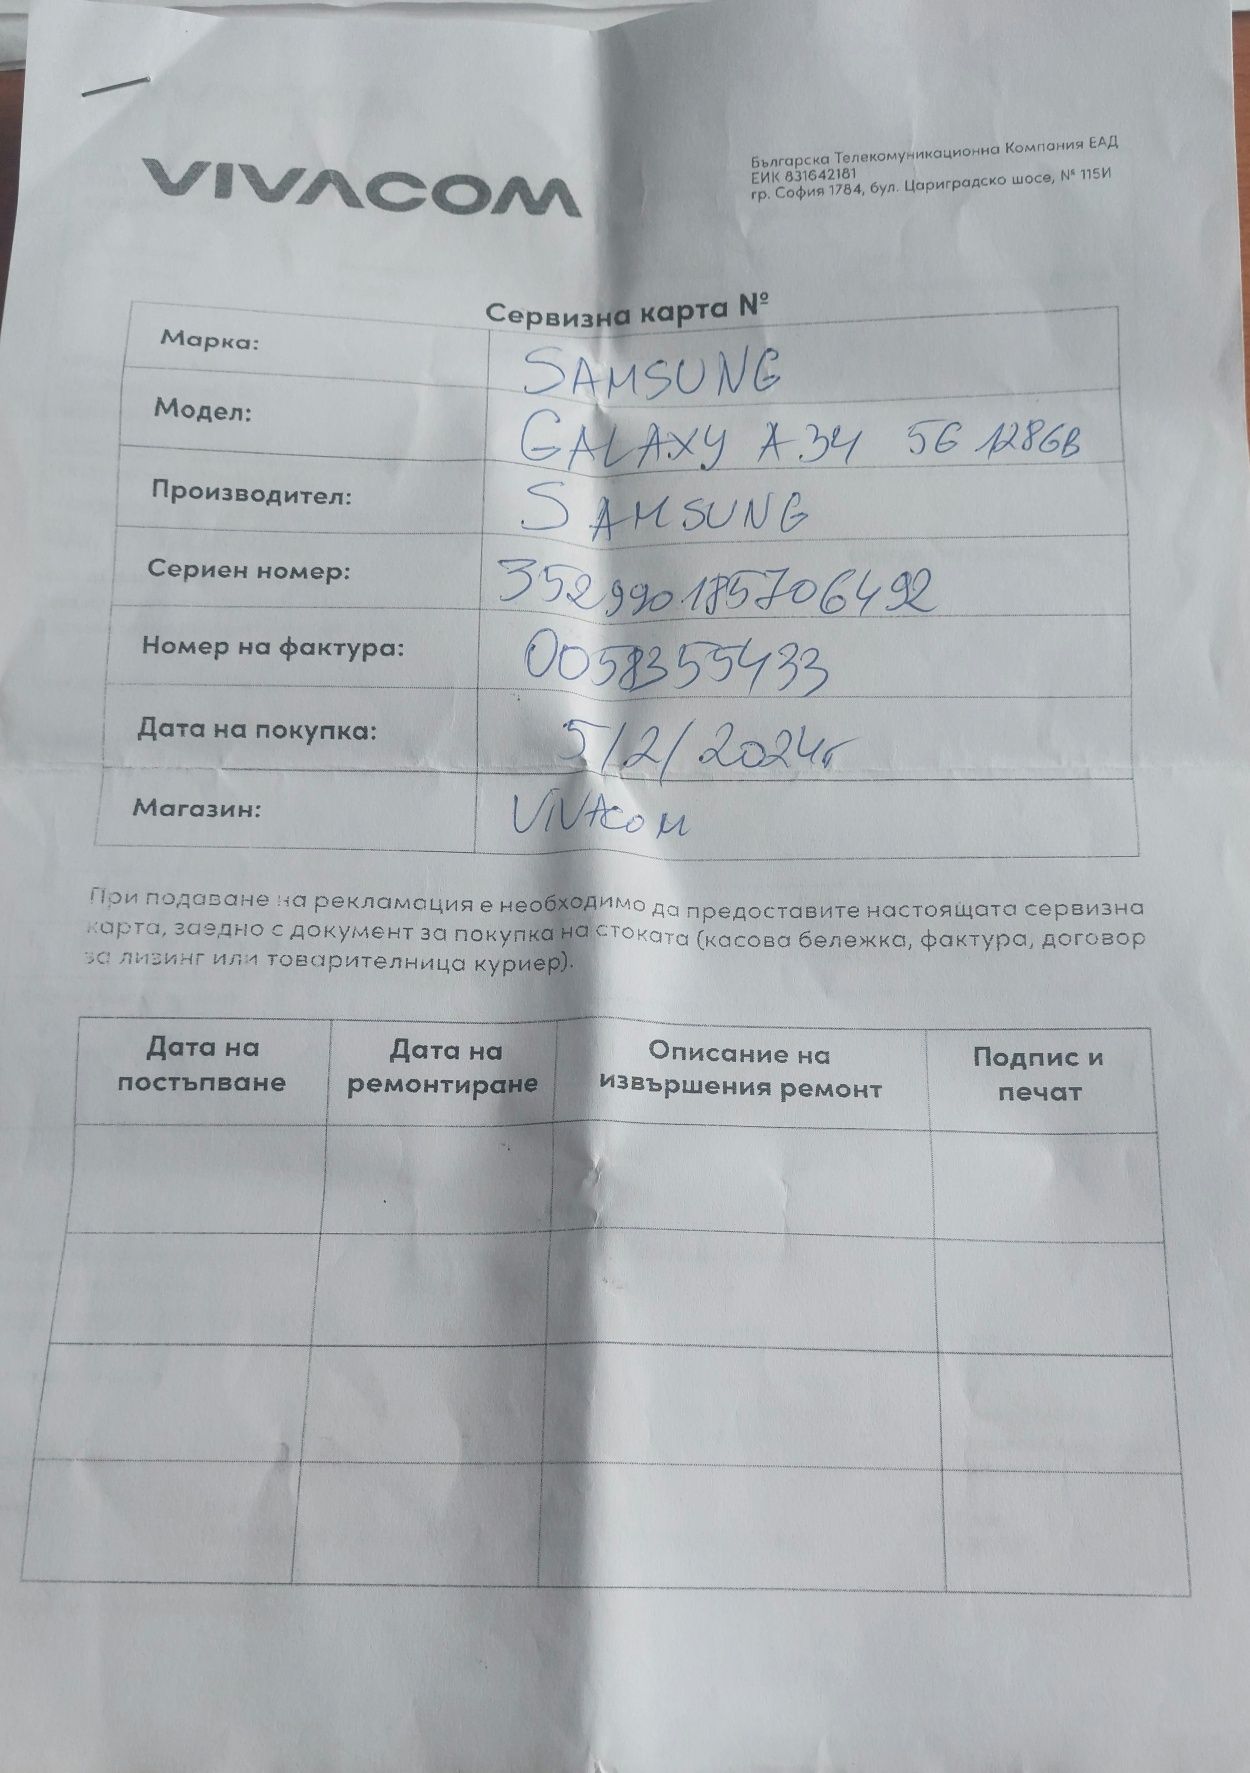 VIVACOM
Българска Телекомуникационна Компания ЕАД
ЕИК 831642181
гр. София 1784, бул. Цариградско шосе, № 115И
Сервизна карта №
Марка: SAMSUNG
Модел: GALAXY A34 5G 128GB
Производител: SAMSUNG
Сериен номер: 352990185706492
Номер на фактура: 0058355433
Дата на покупка: 5/2/2024г
Магазин: VIVACOM
При подаване на рекламация е необходимо да предоставите настоящата сервизна
карта, заедно с документ за покупка на стоката (касова бележка, фактура, договор
за лизинг или товарителница куриер).
Дата на постъпване
Дата на ремонтиране
Описание на извършения ремонт
Подпис и печат